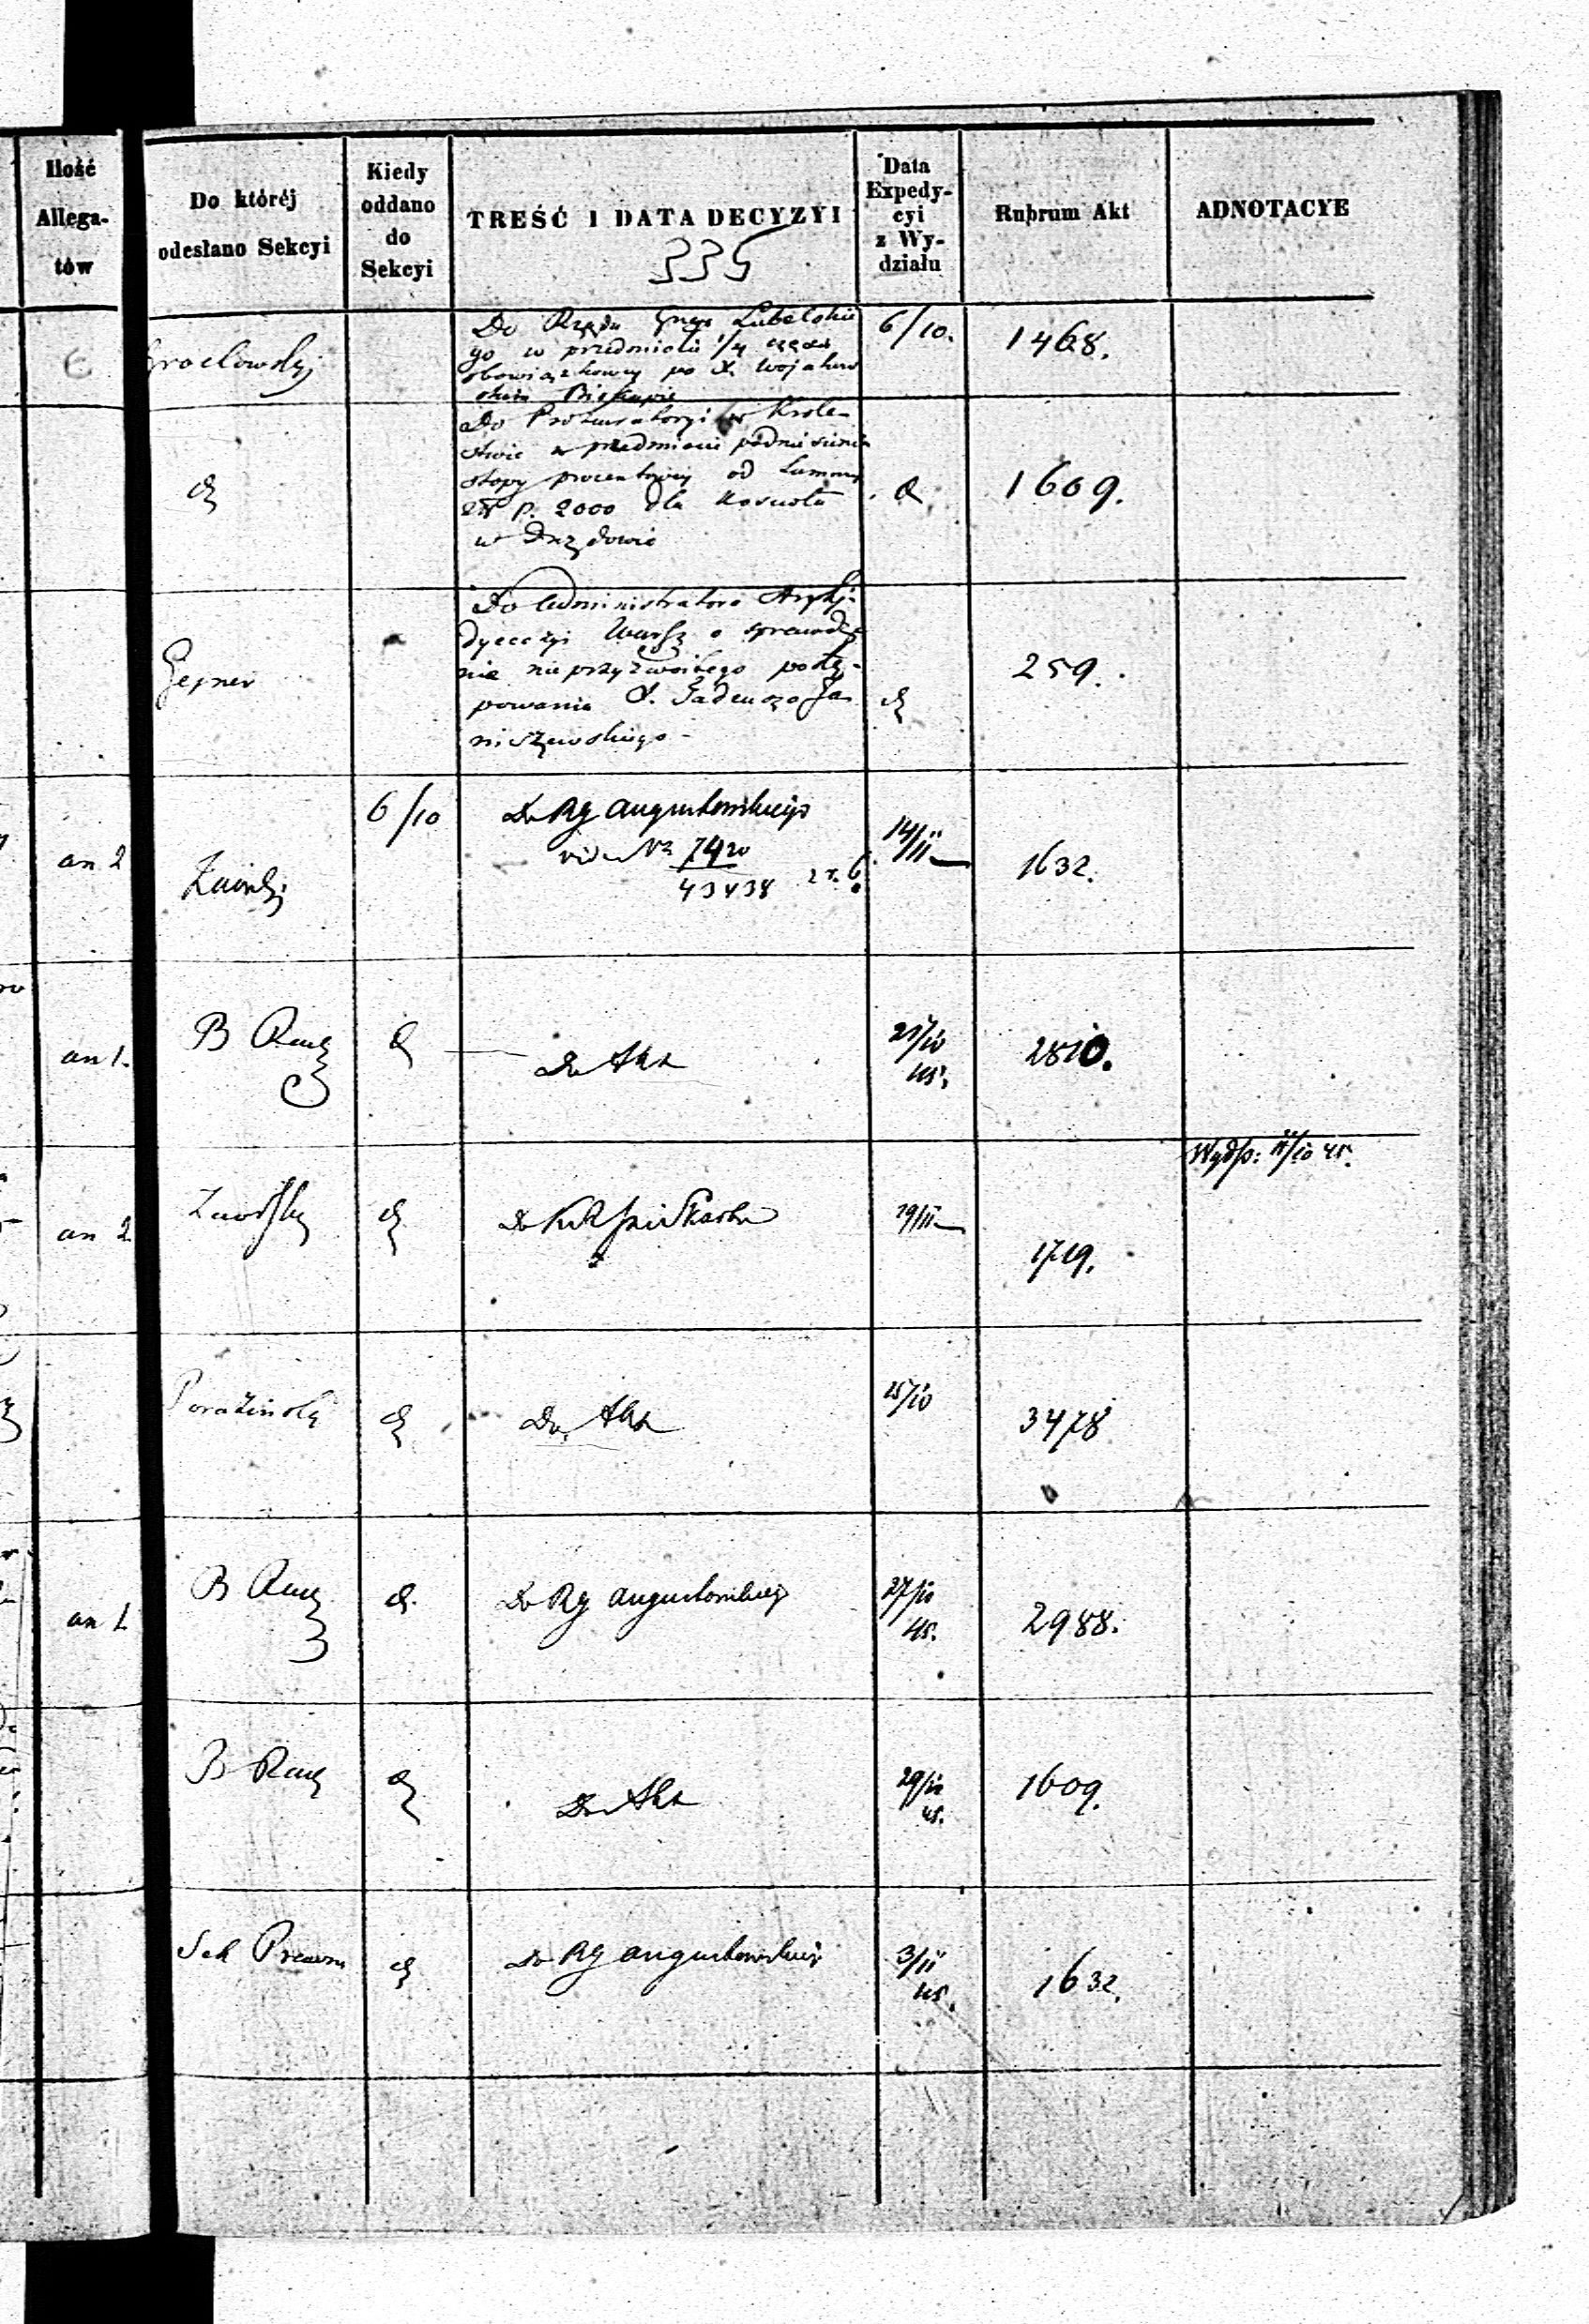 Ilość
Allega-
tów
Do któréj
odesłano Sekcyi
Kiedy
oddano
do
Sekcyi
TREŚĆ I DATA DECYZYI
335
Data
Expedy-
cyi
z Wy-
działu
Rubrum Akt
ADNOTACYE
Do Rządu Gner Lubelskie
go w przedmiocie 1/4 części
obowiązkowey po X. Wojakow
skim Biskupie
6/10.
1468.
Do Prokuratoryi w Króle-
stwie w przedmiocie podniesienia
stopy procentowey od Summy
złp. 2000 dla Kościoła
w
1609.
Gepner
Do Administratora Archi-
dyecezyi Warsz o sprawdze
nie nieprzyzwoitego postę-
powania X. Tadeusza Ja
niszewskiego -
259.
an 2
6/10
Do RG Augustowskiego
vide Nr 7420
43438
14/11
1632.
an 1.
B Rach
Do Akt
45.
2810.
an 2
Do
19/11
1719.
Wydz: 45.
Poraziński
Do Akt
15/10
3478
an 1
B Rach
Do RG Augustowskiego
27/10
45.
2988.
B Rach
Do Akt
45.
1609.
Sek Prawn
Do RG Augustowskiego
3/11
45.
1632.